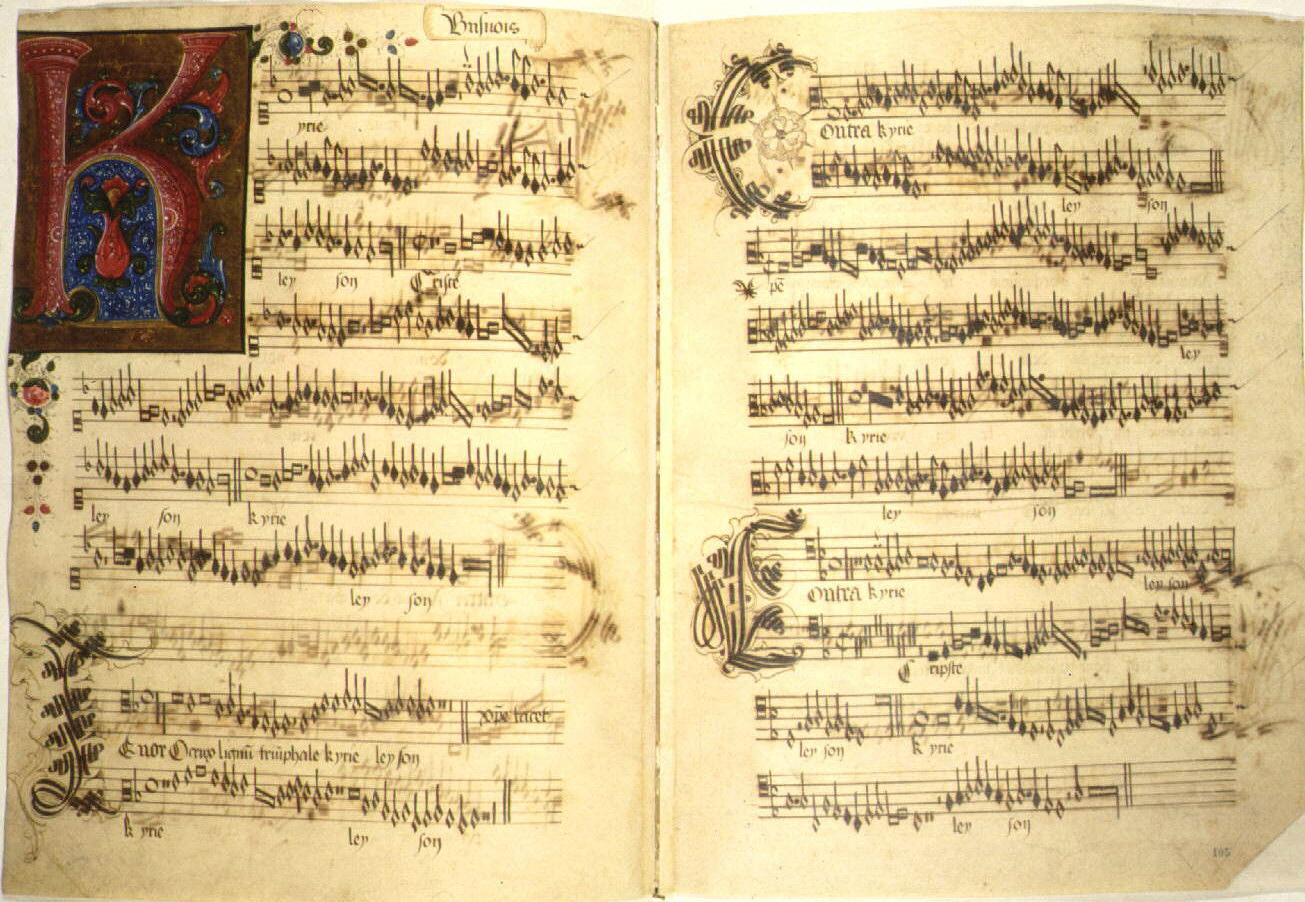 Busnois
K
yrie
ley son Criste
ley son kyrie
ley son
Tenor O crux lignũ triũphale kyrie ley son xp̃e tacet
k yrie ley son
Contra kyrie
ley son
Xpẽ
ley
son kyrie
ley son
Contra kyrie ley son
Cripste
ley son k yrie
ley son
105